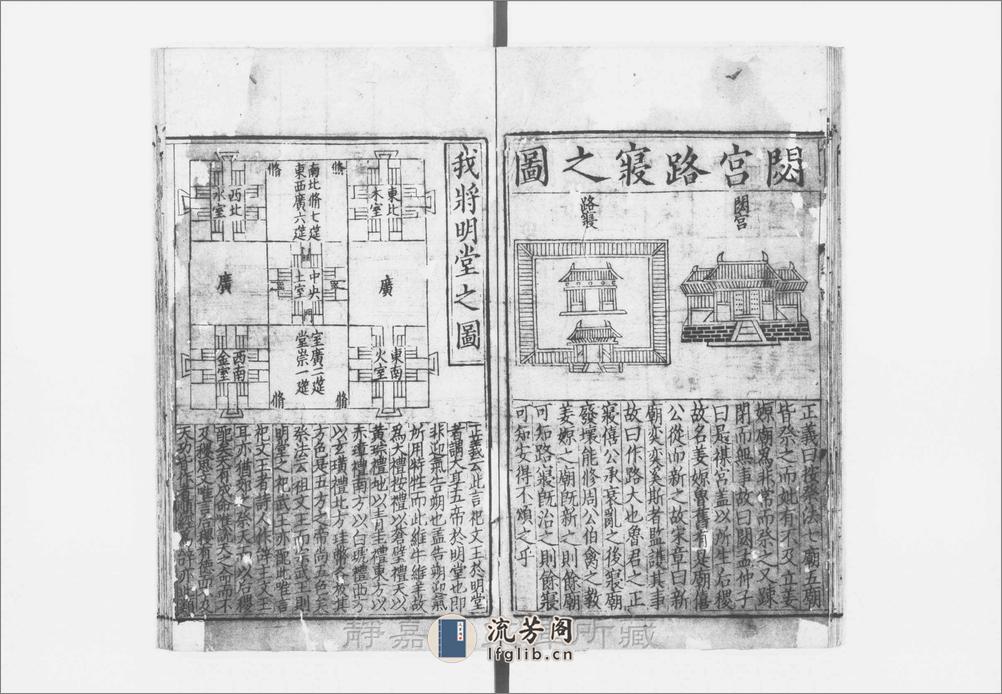 閟宮路寢之圖
閟宮
路寢
正義曰按祭法七廟五廟
皆祭之而妣有不及立姜
嫄廟為非常而祭之又踈
閉而無事故曰閟孟仲子
曰是禖宮盖以所生后稷
故名姜嫄魯舊有是廟僖
公從而新之故宋章曰新
廟奕奕奚斯者監護其事
故曰作路大也魯君之正
寢僖公承衰亂之後寢廟
發壞能修周公伯禽之教
姜嫄之廟既新之則餘廟
可知路寢既治之則餘寢
可知安得不頌之乎
我將明堂之圖
東北
木室
脩
南北脩七筵
東西廣六筵
脩
西北
水室
廣
中央
土室
廣
東南
火室
室廣二筵
堂崇一筵
脩
脩
西南
金室
正義云此言祀文王於明堂
者謂大享五帝於明堂也即
非迎氣告朔也盖告朔迎氣
所用特牲而此維牛維羊故
為大禮按禮以蒼璧禮天以
黃琮禮地以青圭禮東方以
赤璋禮南方以白琥禮西方
以玄璜禮北方牲幣各放其
方色是五方之帝尚五色矣
祭法云祖文王而宗武王則
明堂之祀武王亦配此唯言
祀文王者詩人作詩主文王
耳亦猶如祭天南以后稷
配
又稷思文唯言后稷有德而不及
天
靜嘉所藏
流芳阁
lfglib.cn